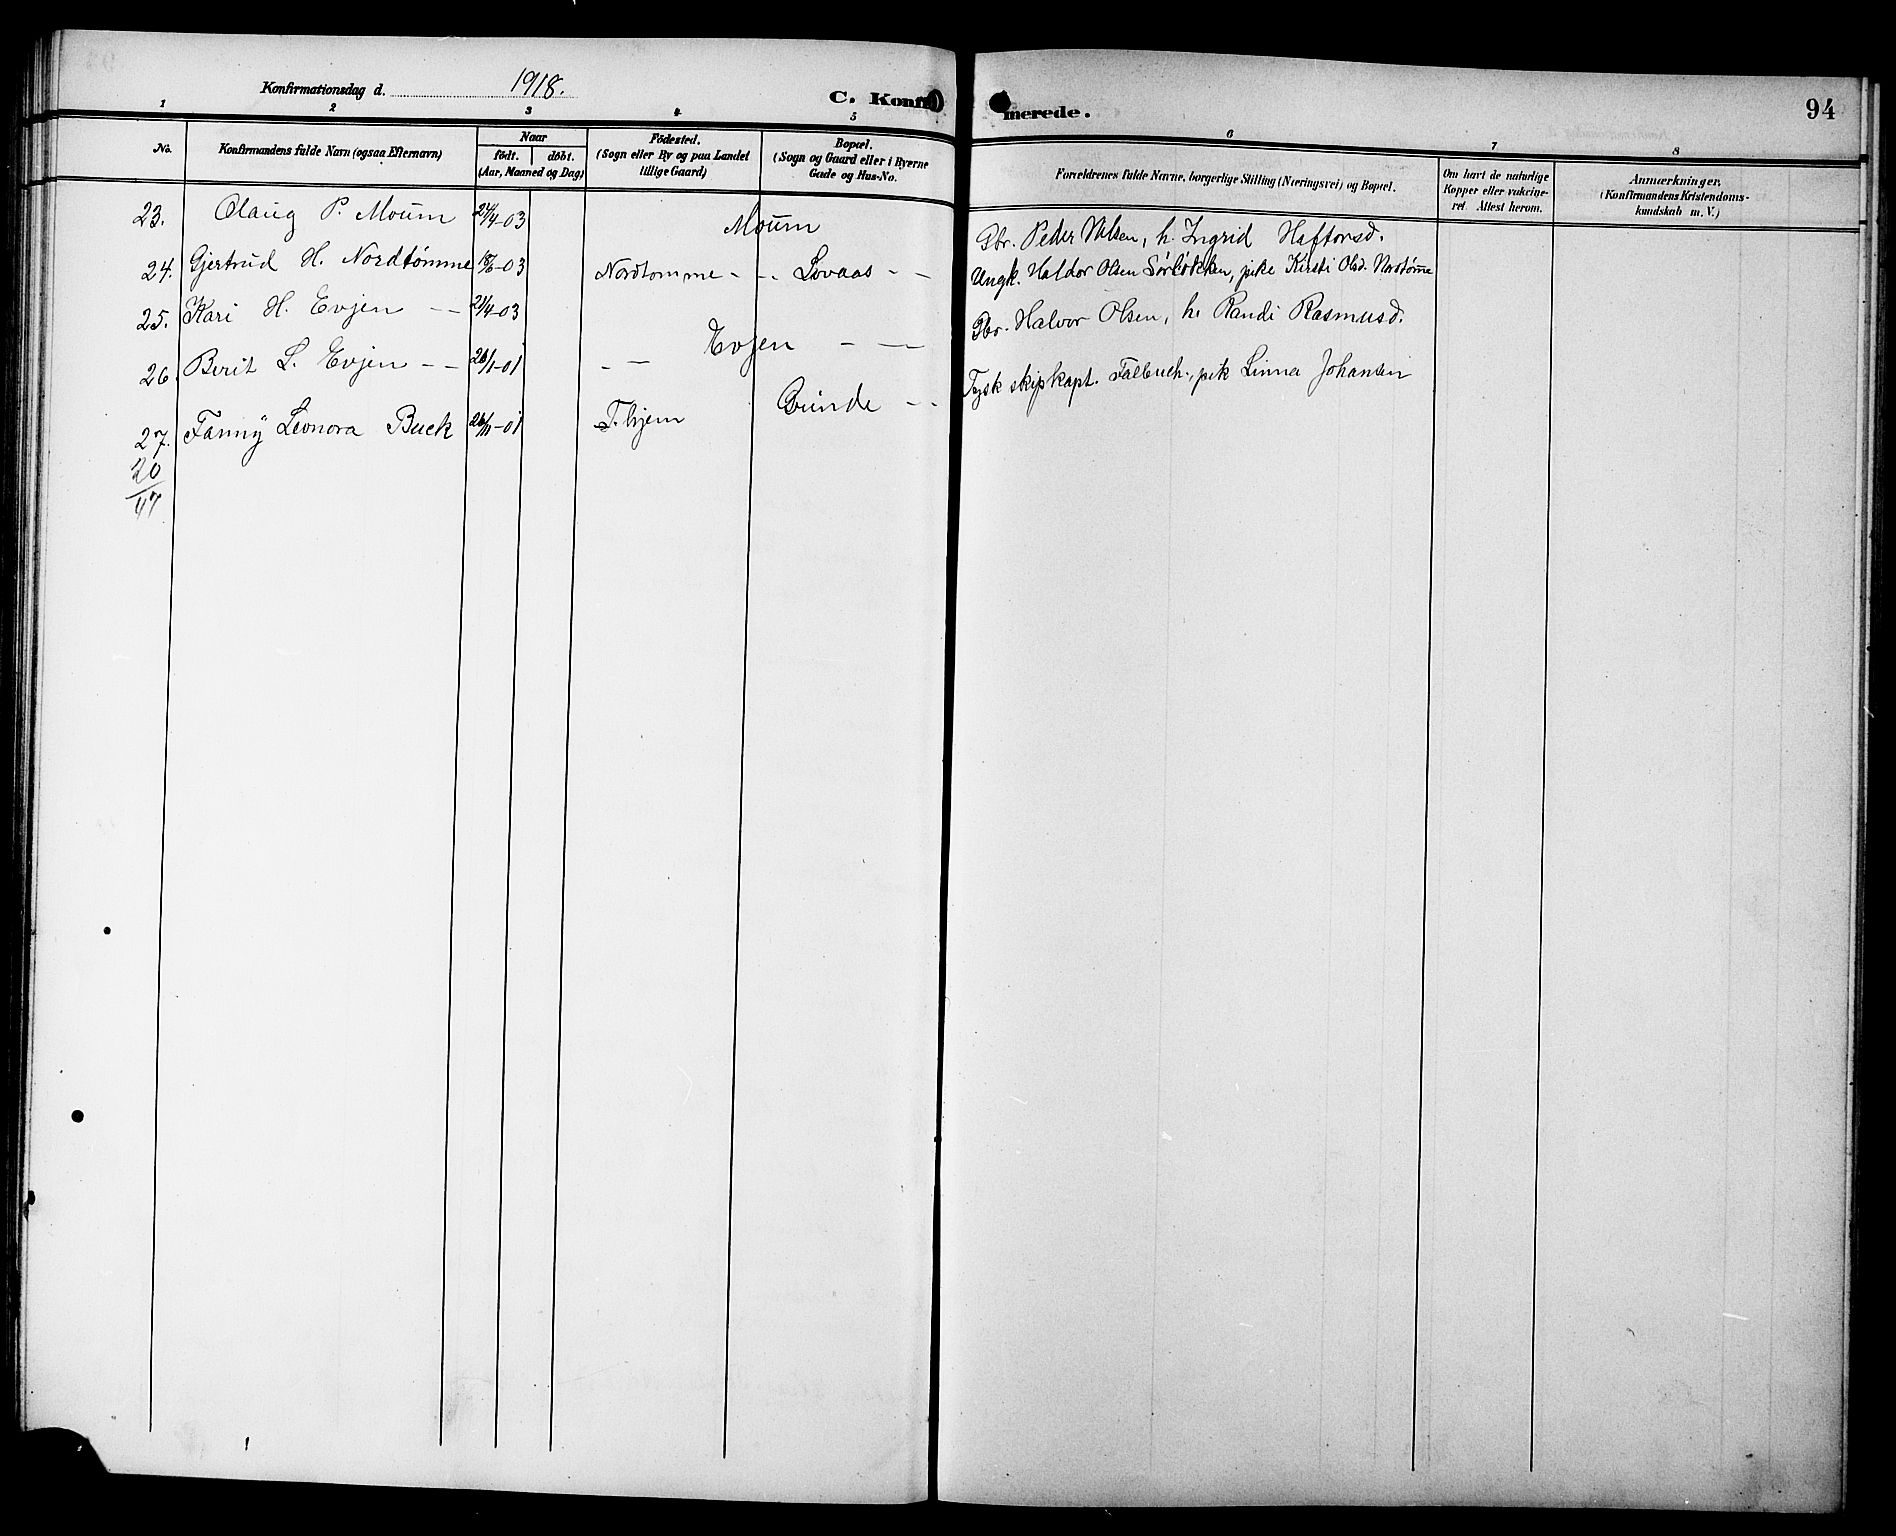 Konfirmationsdag d. 1918.
C. Konfirmerede.
94
1 2 3 4 5 6 7 8
No.
Konfirmandens fulde Navn (ogsaa Efternavn)
Naar
födt. döbt.
(Aar, Maaned og Dag)
Födested.
(Sogn eller By og paa Landet
tillige Gaard)
Bopæl.
(Sogn og Gaard eller i Byerne
Gade og Hus-No.
Forældrenes fulde Navne, borgerlige Stilling (Næringsvei) og Bopæl.
Om havt de naturlige
Kopper eller vakcine-
ret. Attest herom.
Anmærkninger.
(Konfirmandens Kristendoms-
kundskab m. V.)
23. Olaug P. Moum 24/4-03 Moum Gbr. Peder Nilsen, h. Ingrid Haftorsd.
24. Gjertrud H. Nordtømme -03 Nordtomme - - - Lovaas - - Ungk. Haldor Olsen Sørløkken, pike Kirsti Olsd. Nordtømme
25. Kari H. Evjen - - 21/4-03 Evjen - - Gbr. Halvor Olsen, h. Randi Rasmusd.
26. Berit L. Evjen - - -01 - -
27. Fanny Leonora Buck -01 T.hjem Grinde - - Tysk skipskapt. Falbuch, pik Linna Johansen
20
/47